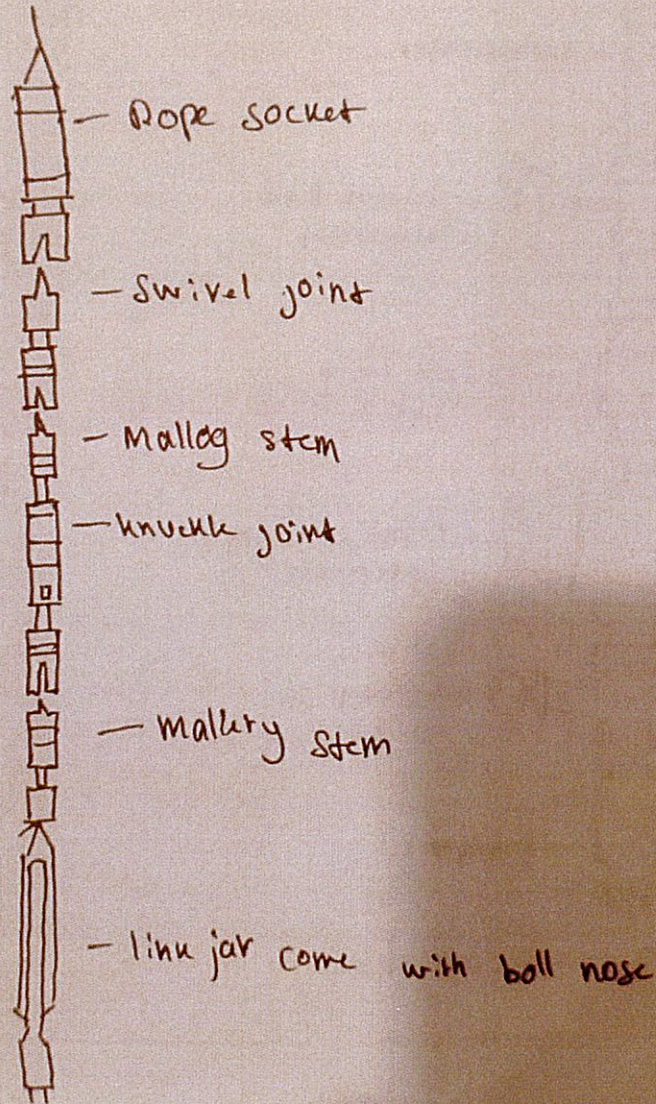 Rope socket
Swivel joint
Mallog stem
knuckle joint
mallery stem
link jar come with boll nose